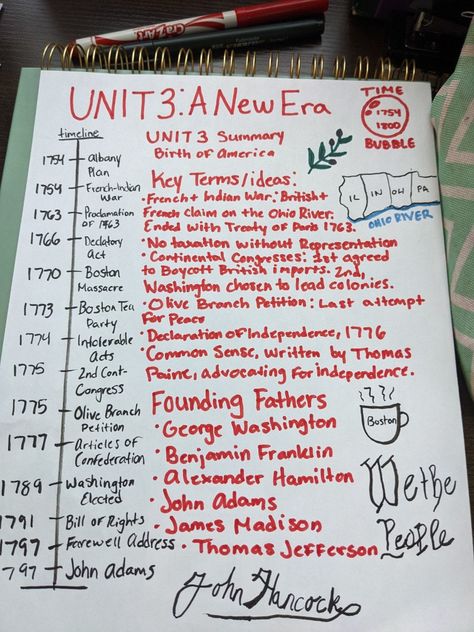 CRAZART
UNIT 3: A New Era
TIME
1754
1800
BUBBLE
timeline
1754 Albany Plan
1754 French-Indian War
1763 Proclamation of 1963
1766 Declatory Act
1770 Boston Massacre
1773 Boston Tea Party
1774 Intolerable Acts
1775 2nd Cont- Congress
1775 Olive Branch Petition
1777 Articles of Confederation
1789 Washington Elected
1791 Bill of Rights
1797 Farewell Address
1797 John Adams
UNIT 3 Summary
Birth of America
Key Terms/ideas:
• French + Indian War: British +
French claim on the Ohio River.
Ended with Treaty of Paris 1763.
• No taxation without Representation
• Continental Congresses: 1st agreed
to Boycott British imports. 2nd,
Washington chosen to lead colonies.
• Olive Branch Petition: Last attempt
for Peace
• Declaration of Independence, 1776
• Common Sense, written by Thomas
Paine, advocating for independence.
IL IN OH PA
OHIO RIVER
Founding Fathers
• George Washington
• Benjamin Franklin
• Alexander Hamilton
• John Adams
• James Madison
• Thomas Jefferson
Boston
We the
People
John Hancock